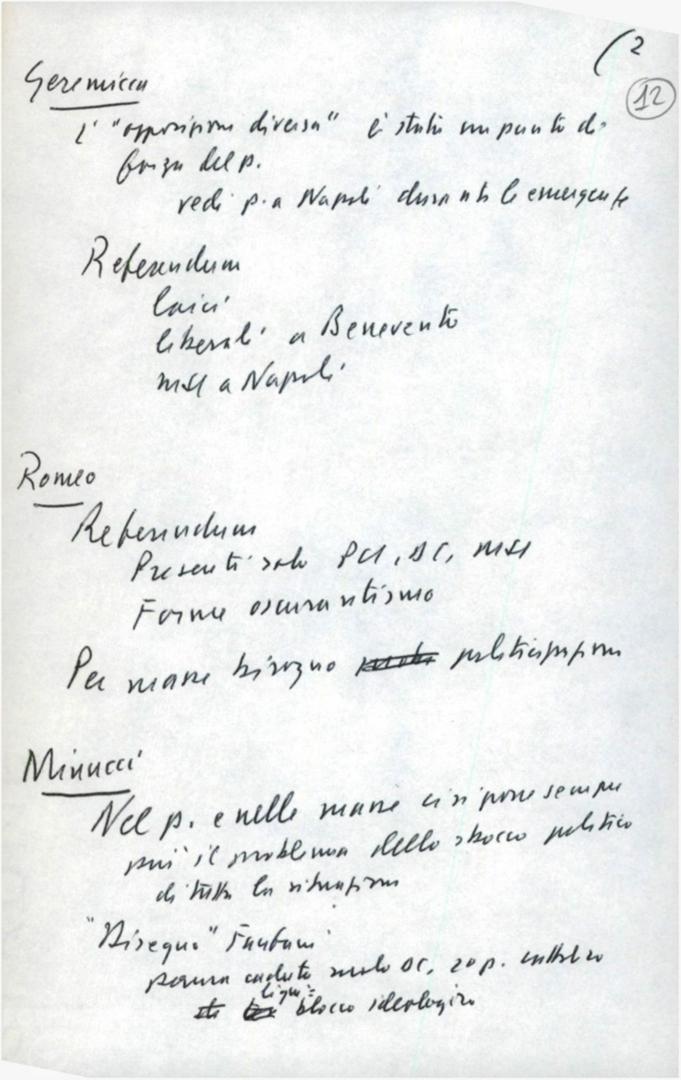 (2
12
Geremicca
L' "opposizione diversa" è stato un punto di
forza del p.
vedi p. a Napoli durante le emergenze
Referendum
laici
liberali a Benevento
MSI a Napoli
Romeo
Referendum
Presenti solo PCI, DC, MSI
Forme oscurantismo
Per masse bisogno politicizzazione
Minucci
Nel p. e nelle masse ci si pone sempre
più il problema dello sbocco politico
di tutta la situazione
"Disegno" Fanfani
caduta ruolo DC,
blocco ideologico